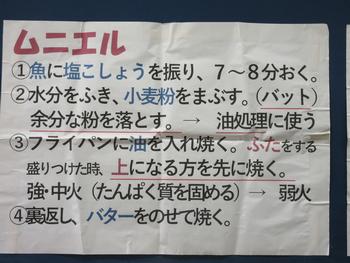 ムニエル
①魚に塩こしょうを振り、７～８分おく。
②水分をふき、小麦粉をまぶす。（バット）
余分な粉を落とす。→ 油処理に使う
③フライパンに油を入れ焼く。ふたをする
盛りつけた時、上になる方を先に焼く。
強・中火（たんぱく質を固める）→ 弱火
④裏返し、バターをのせて焼く。